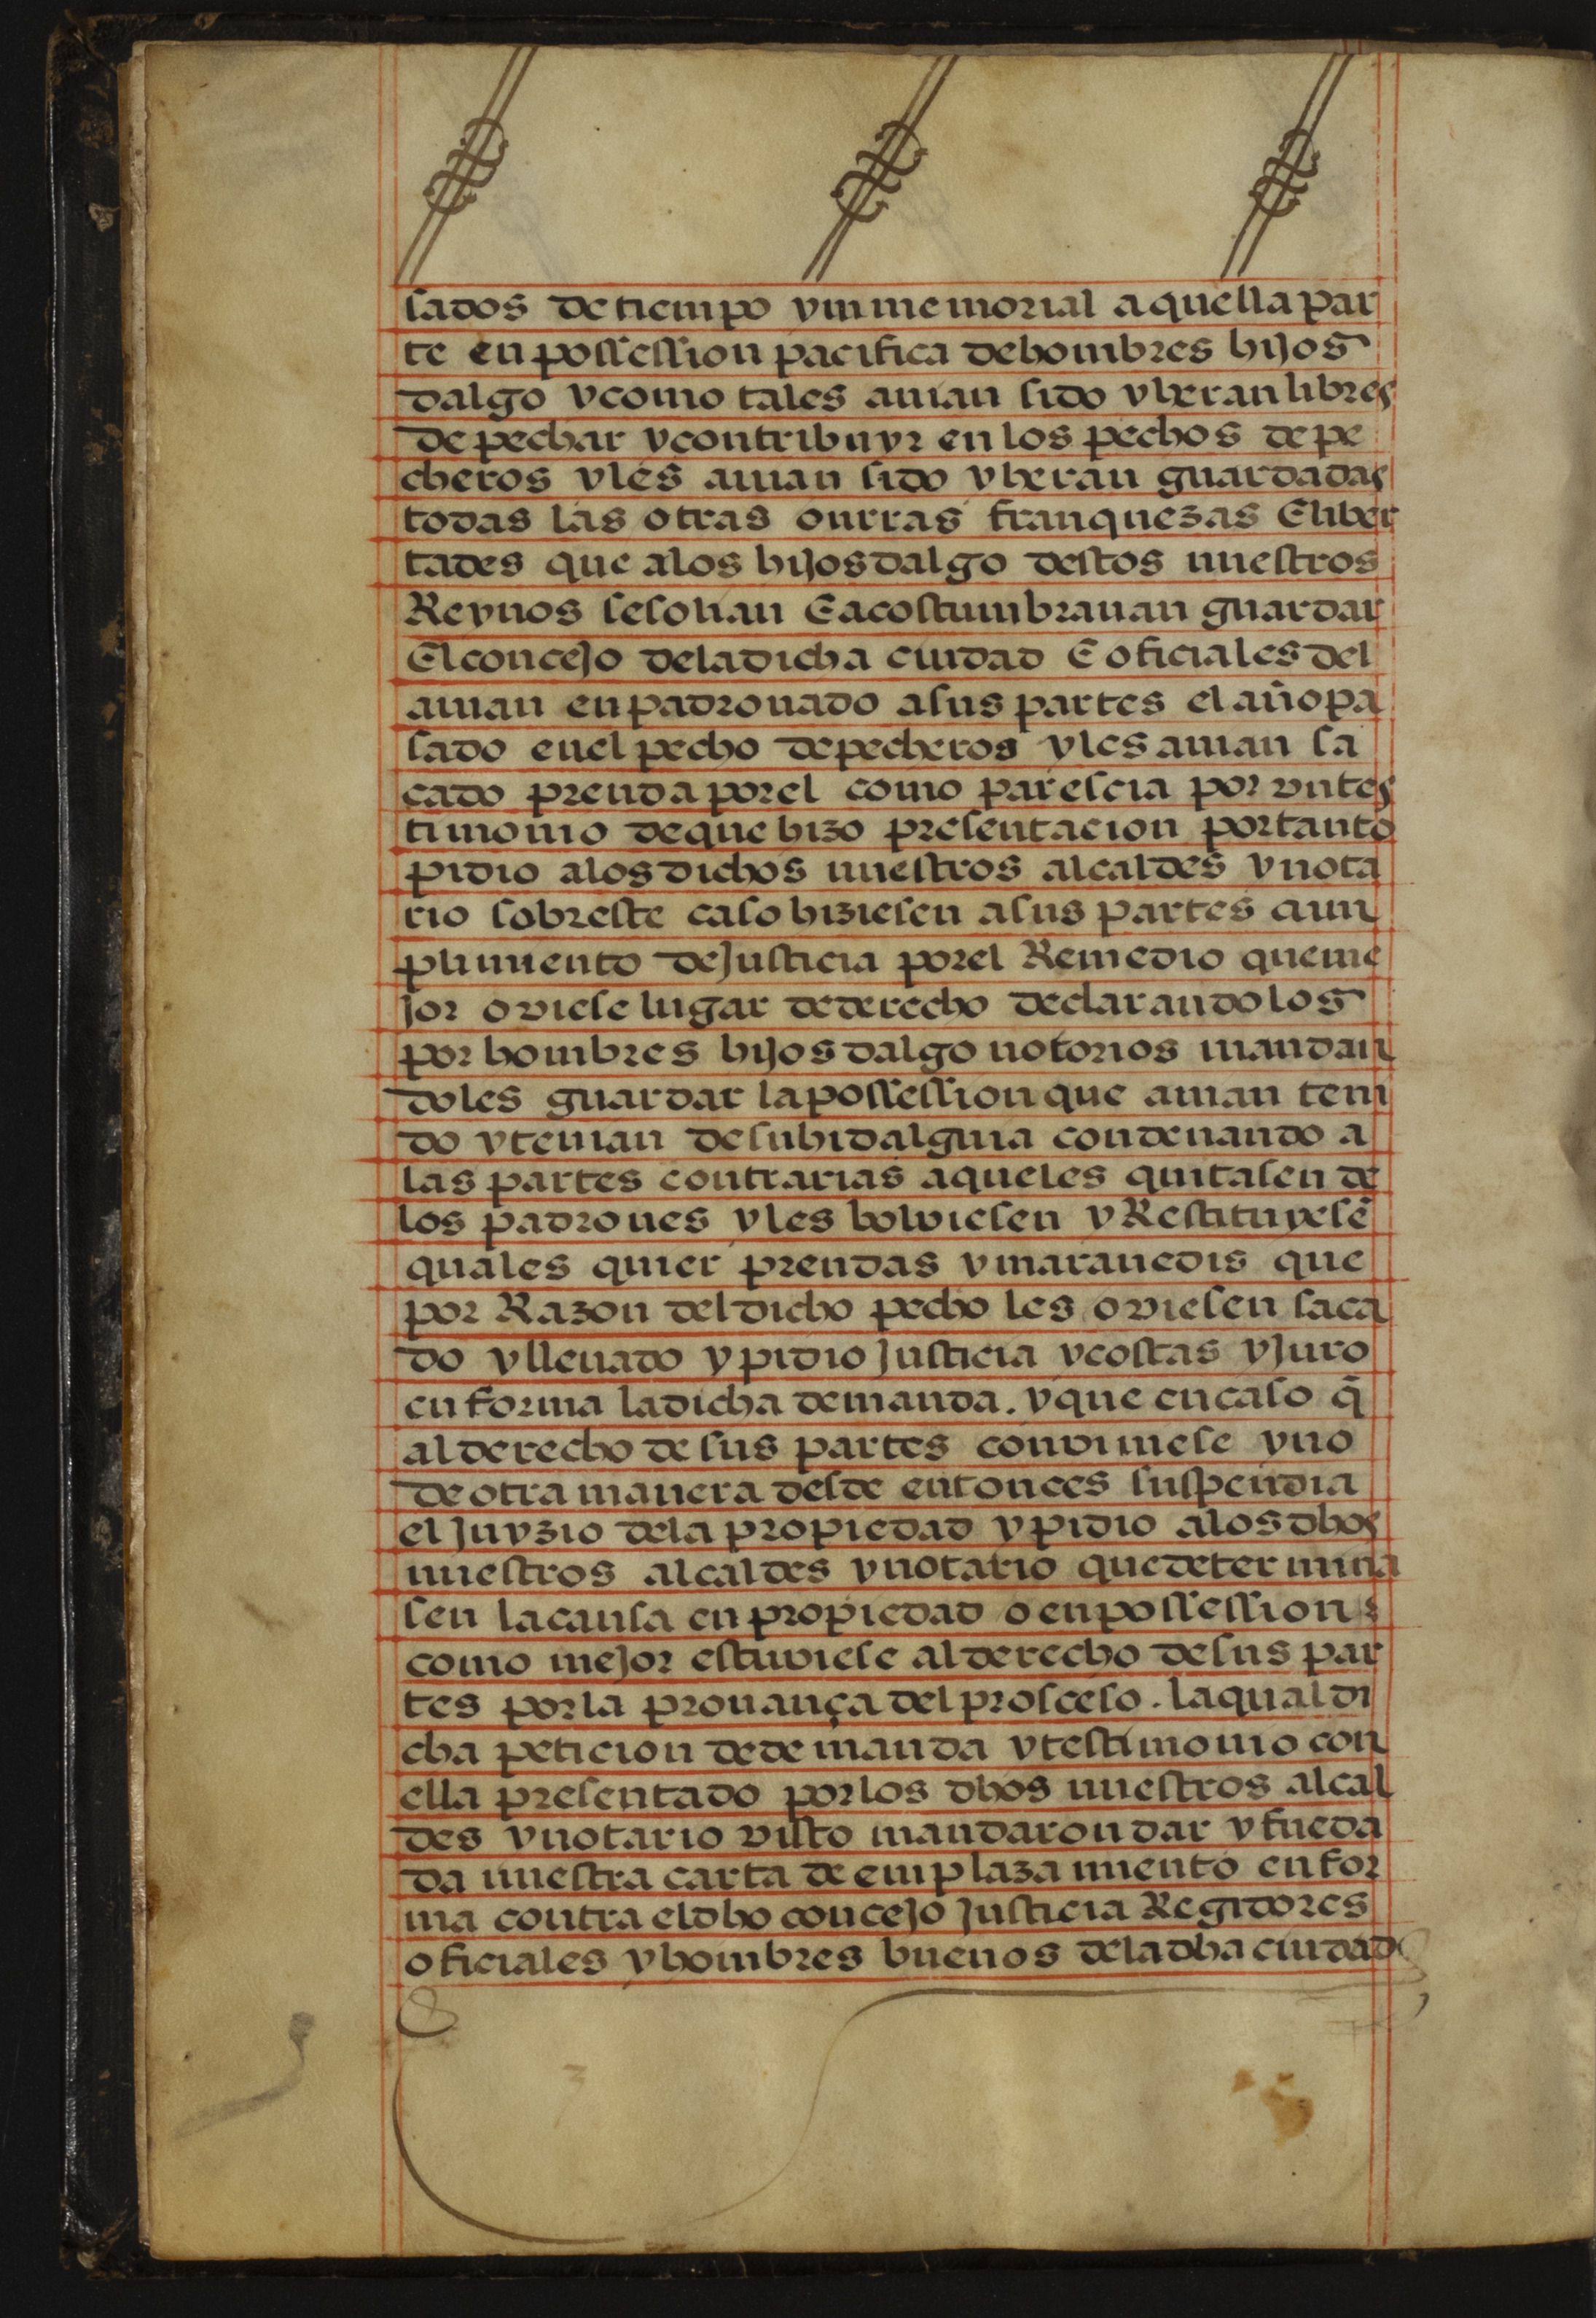 sados de tiempo ynmemorial a quella par
te en possession pacifica de hombres hijos
dalgo y como tales auian sido y heran libres
de pechar y contribuyr en los pechos de pe
cheros y les auian sido y heran guardadas
todas las otras onrras franquezas E liber
tades que a los hijos dalgo destos nuestros
Reynos se solian E acostumbrauan guardar
El concejo de la dicha ciudad E oficiales del
auian enpadronado a sus partes el año pa
sado en el pecho de pecheros y les auian sa
cado prenda por el como parescia por vn tes
timonio de que hizo presentacion por tanto
pidio a los dichos nuestros alcaldes y nota
rio sobreste caso hiziesen a sus partes cun
plimiento de Justicia por el Remedio que me
Jor oviese lugar de derecho declarandolos
por hombres hijos dalgo notorios mandan
doles guardar la possession que auian teni
do y tenian de su hidalguia condenando a
las partes contrarias a que les quitasen de
los padrones y les bolviesen y Restituyesē
quales quier prendas y marauedis que
por Razon del dicho pecho les oviesen saca
do y lleuado y pidio Justicia y costas y Juro
en forma la dicha demanda. y que en caso q̄
al derecho de sus partes conviniese y no
de otra manera desde entonces suspendia
el Juyzio de la propiedad y pidio a los dhos
nuestros alcaldes y notario que determina
sen la causa en propiedad o en possession
como mejor estuviese al derecho de sus par
tes por la prouança del prosceso. la qual di
cha peticion de demanda y testimonio con
ella presentado por los dhos nuestros alcal
des y notario visto mandaron dar y fue da
da nuestra carta de emplazamiento en for
ma contra el dho concejo Justicia Regidores
oficiales y hombres buenos de la dha ciudad